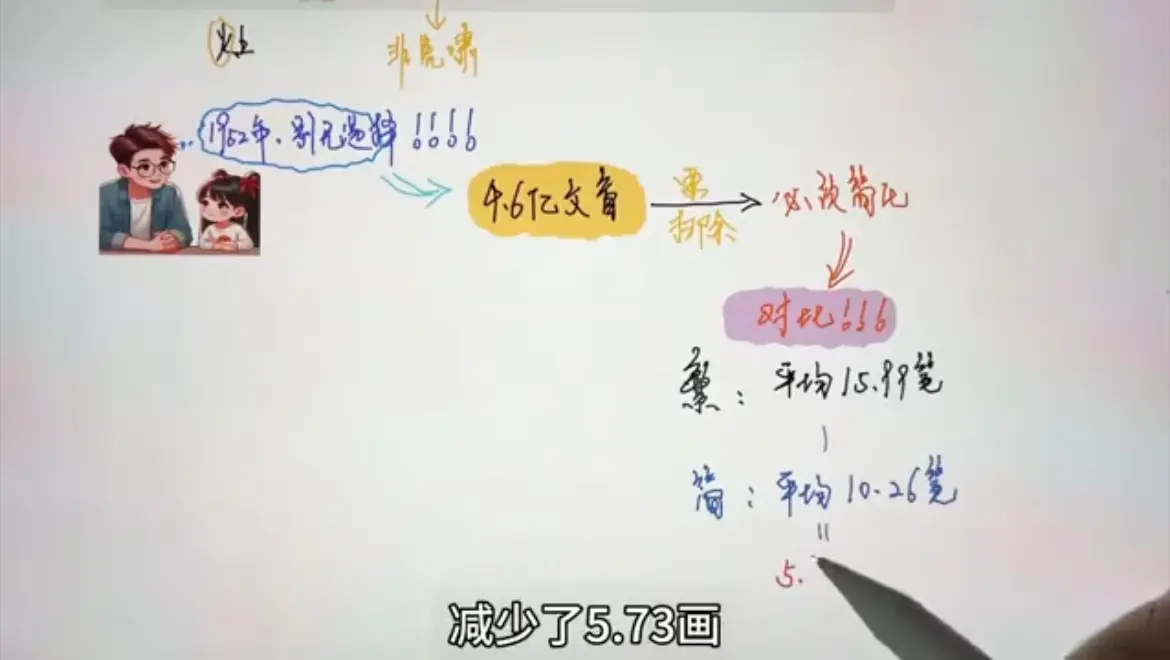 灶
1952年、别无选择!!!!
4.6亿文盲
要
排除
必须简化
对比!!!
繁:平均15.99笔
简:平均10.26笔
5.
减少了5.73画